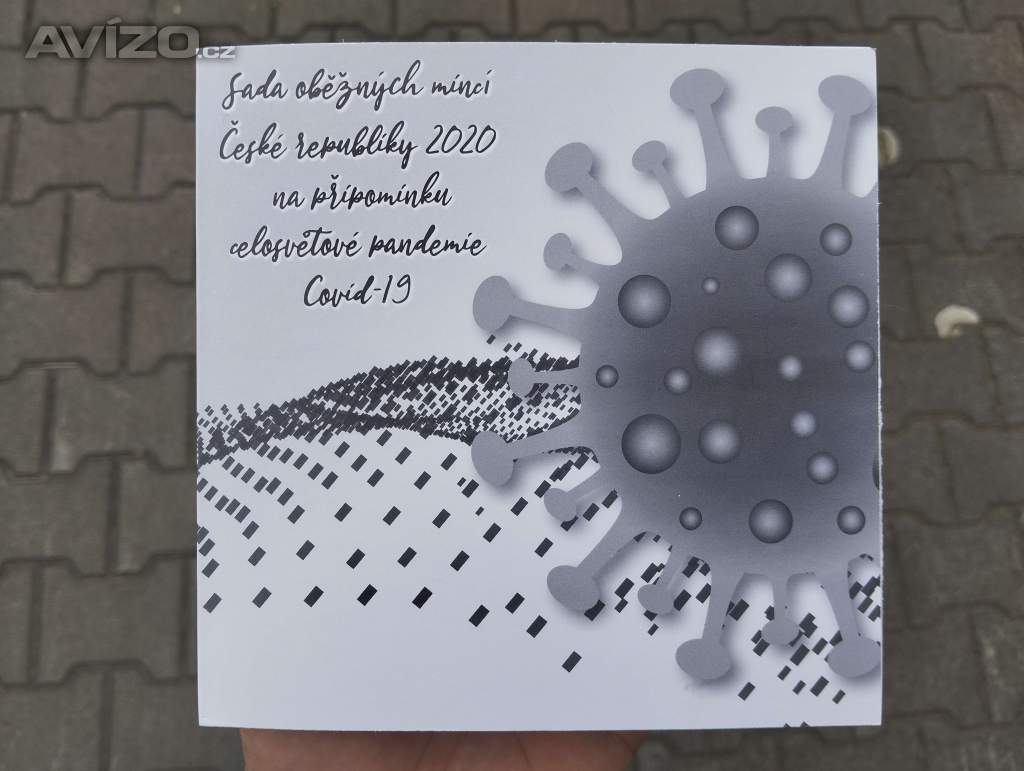 AVÍZO.cz
Sada oběžných mincí
České republiky 2020
na připomínku
celosvětové pandemie
Covid-19